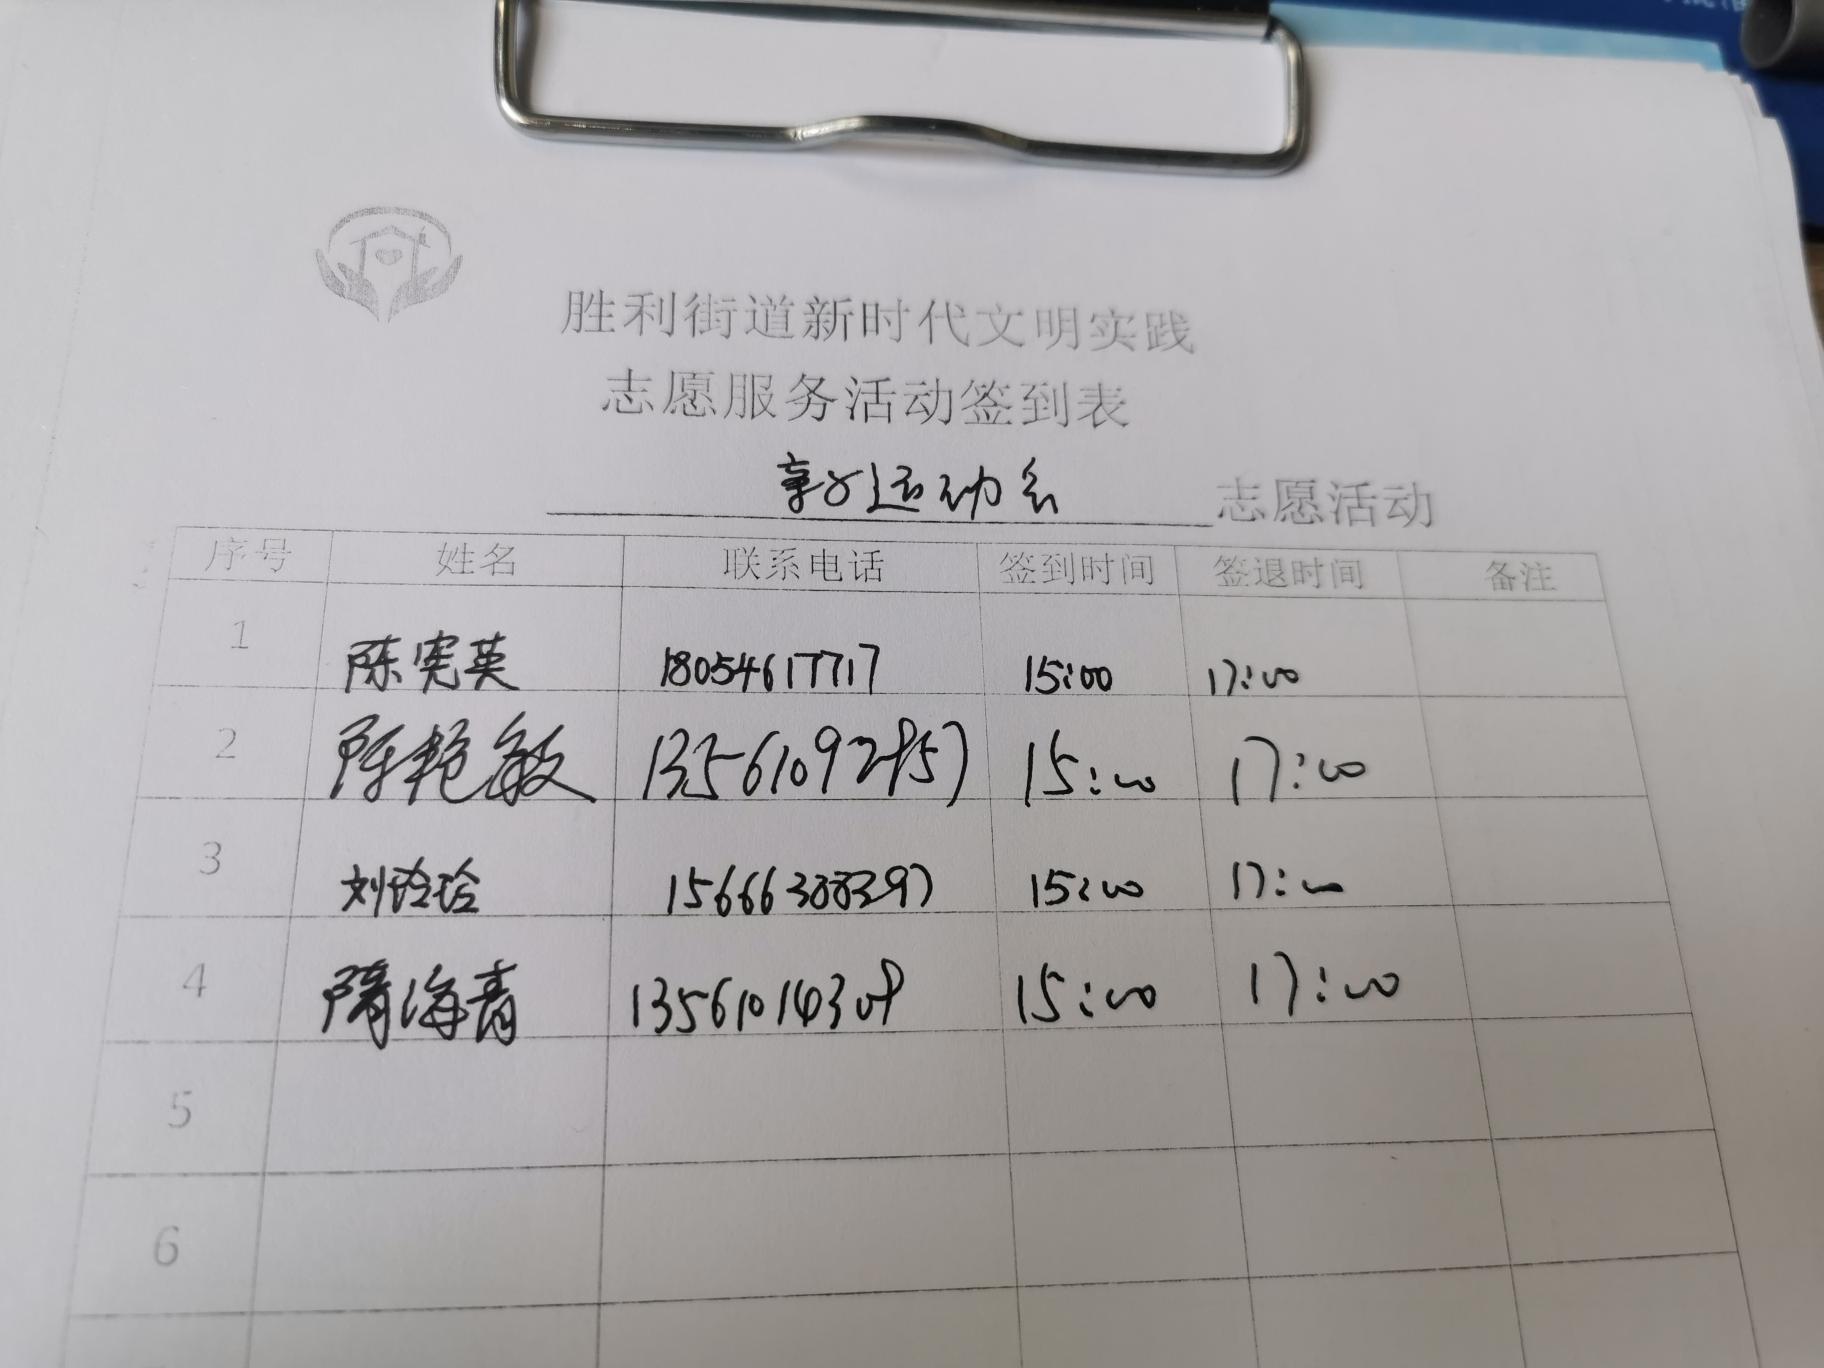 胜利街道新时代文明实践
志愿服务活动签到表
亲子运动会 志愿活动
序号 姓名 联系电话 签到时间 签退时间 备注
1 陈宪英 18054617717 15:00 17:00
2 陈艳敏 13561092957 15:00 17:00
3 刘玲玲 15666388397 15:00 17:00
4 隋海青 15:00 17:00
5
6